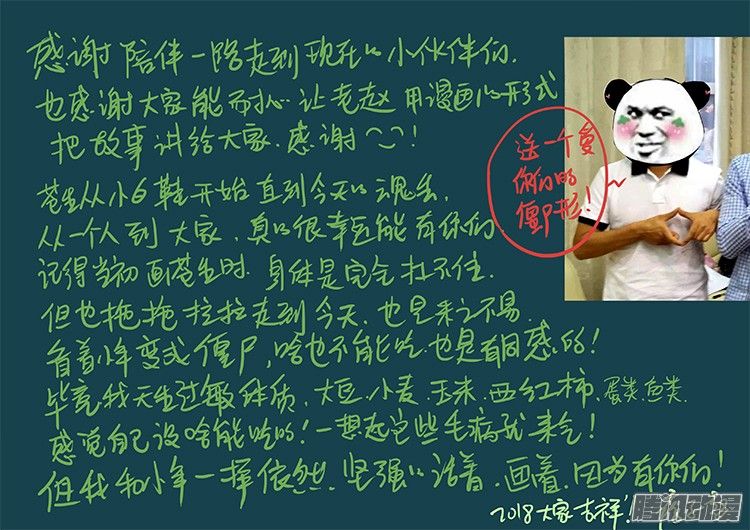 感谢陪伴一路走到现在的小伙伴们.
也感谢大家能耐心让老赵用漫画的形式
把故事讲给大家.感谢^_^!
苍生从小白鞋开始直到今天的魂丢,
从一个人到大家,真的很幸运能有你们
记得当初画苍生时.身体是完全扛不住.
但也拖拖拉拉走到今天.也是来之不易.
看着小年变成僵尸,啥也不能吃.也是有同感的!
毕竟我天生过敏体质,大豆.小麦.玉米.西红柿.蛋类.鱼类.
感觉自己没啥能吃的!一想起这些毛病就来气!
但我和小年一样依然.坚强的活着.画着.因为有你们!
2018大家吉祥!
送一个爱
你们的
僵尸形!
腾讯动漫